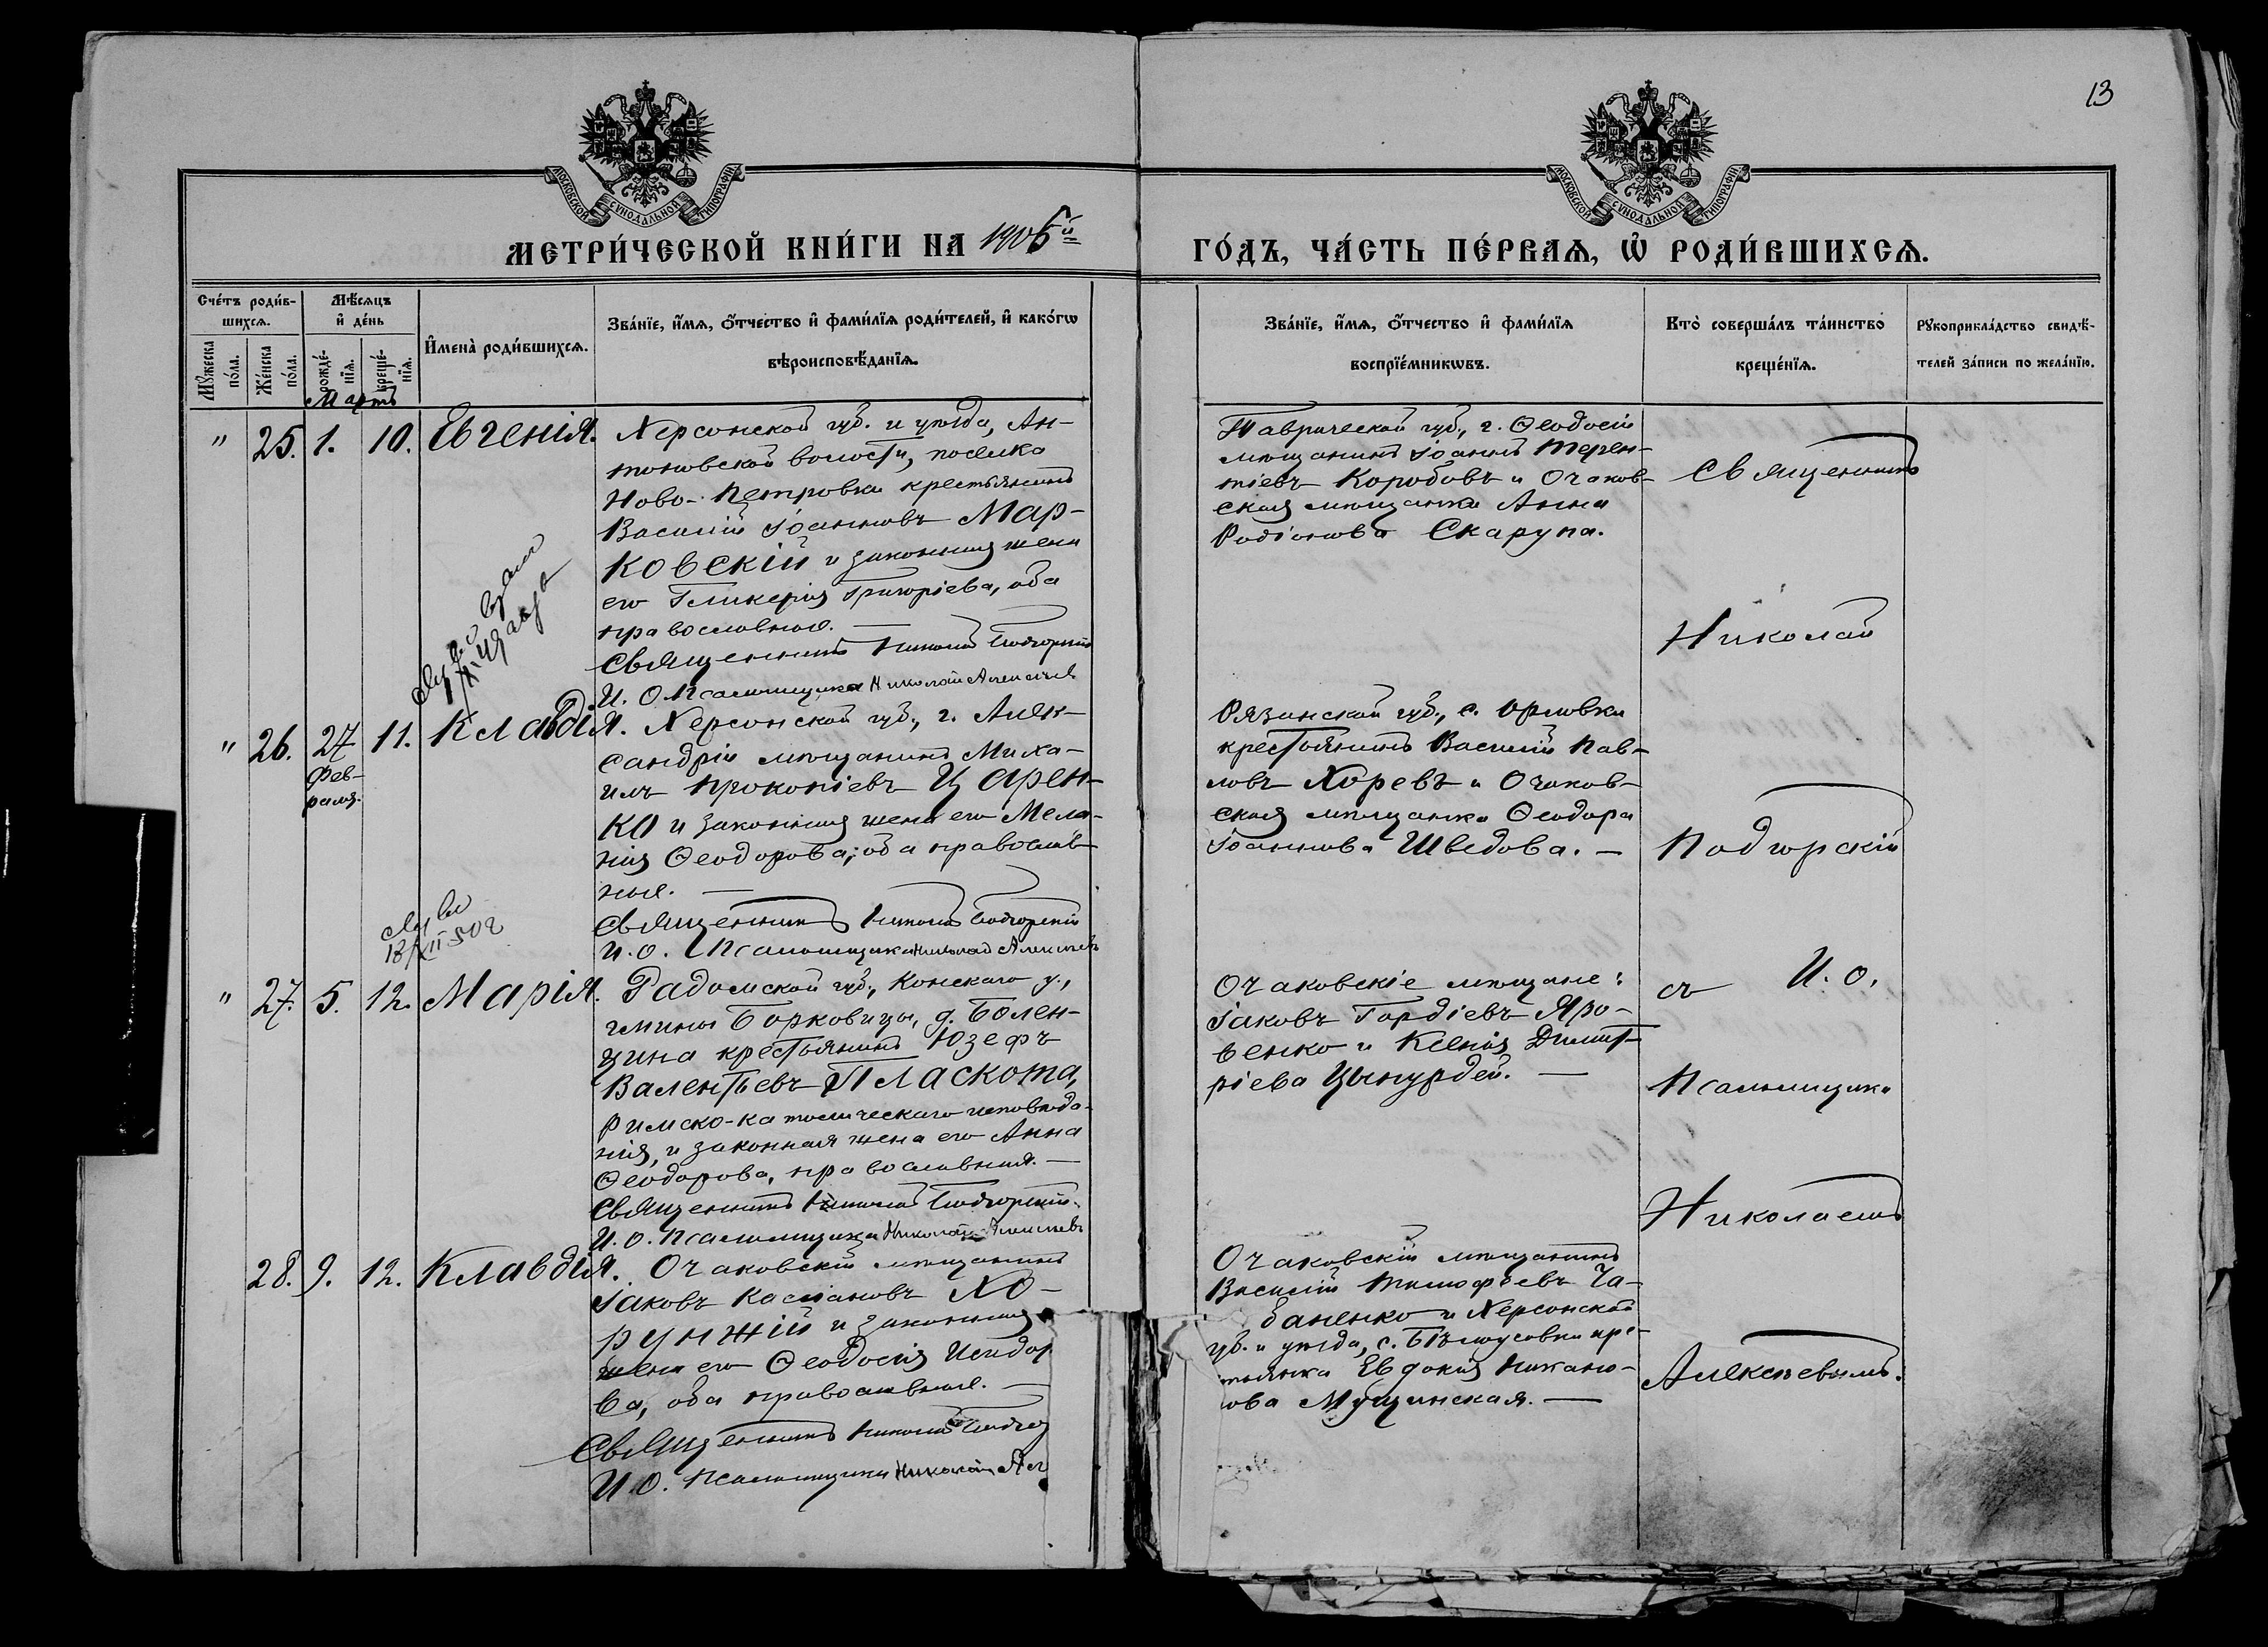 13
МОСКОВСКОЙ СѴНОДАЛЬНОЙ ТИПОГРАФІИ
МОСКОВСКОЙ СѴНОДАЛЬНОЙ ТИПОГРАФІИ
МЕТРИ́ЧЕСКОЙ КНИ́ГИ НА 1905й
ГО́ДЪ, ЧА́СТЬ ПЕ́РВАѦ, Ѡ҆ РОДИ́ВШИХСѦ.
Сче́тъ роди́в-
шихсѧ.
Мѣ́сѧцъ
и҆ де́нь
Мꙋ́жеска
по́ла.
Же́нска
по́ла.
рожде́-
нїѧ.
креще́-
нїѧ.
И҆мена̀ роди́вшихсѧ.
Зва́нїе, и҆́мѧ, ѻ҆́тчество и҆ фами́лїѧ роди́телей, и҆ како́гѡ
вѣроисповѣ́данїѧ.
Зва́нїе, и҆́мѧ, ѻ҆́тчество и҆ фами́лїѧ
воспрїе́мникѡвъ.
Кто̀ соверша́лъ та́инство
креще́нїѧ.
Рꙋкоприкла́дство свидѣ́-
телей за́писи по жела́нїю.
Мартъ
" 25. 1. 10. Евгенія.
Херсонской губ. и уѣзда, Ан-
тоновской волости, поселка
Ново-Петровки крестьянинъ
Василій Іоанновъ Мар-
ковскій и законная жена
его Гликерія Григоріева, оба
православные. —
Священникъ Николай Подгорскій
И. О. Псаломщика Николай Алексѣевъ
Таврической губ., г. Ѳеодосіи
мѣщанинъ Іоаннъ Терен-
тіевъ Коробовъ и Очаков-
ская мѣщанка Анна
Родіонова Скарупа.
" 26. 27 Фев-
раля.
11. Клавдія.
Херсонской губ., г. Алек-
сандріи мѣщанинъ Миха-
илъ Прокопіевъ Царен-
ко и законная жена его Мела-
нія Ѳеодорова, оба православ-
ные. —
Священникъ Николай Подгорскій
И. О. Псаломщика Николай Алексѣевъ
Рязанской губ., с. Орловки
крестьянинъ Василій Пав-
ловъ Хоревъ и Очаков-
ская мѣщанка Ѳеодора
Іоаннова Шведова. —
" 27. 5. 12. Марія.
Радомской губ., Конскаго у.,
гмины Борковицы, д. Болен-
цина крестьянинъ Юзефъ
Валентьевъ Пласкота,
Римско-католическаго исповѣда-
нія, и законная жена его Анна
Ѳеодорова, православная. —
Священникъ Николай Подгорскій.
И. О. Псаломщика Николай Алексѣевъ
Очаковскіе мѣщане:
Іаковъ Гордіевъ Яро-
венко и Ксенія Димит-
ріева Цынурдей. —
28. 9. 12. Клавдія.
Очаковскій мѣщанинъ
Іаковъ Касіановъ Хо-
рунжій и законная
жена его Ѳеодосія Исидор
ва, оба православные. —
Священникъ Николай Подго
И. О. Псаломщика Николай Ал
Очаковскій мѣщанинъ
Василій Тимофеевъ Ча-
баненко и Херсонской
губ. и уѣзда, с. Бѣлоусовки кре-
тьянка Евдокія Никано-
ова Мущинская. —
Священникъ
Николай
Подгорскій
съ И. О.
Псаломщика
Николаемъ
Алексѣевымъ.